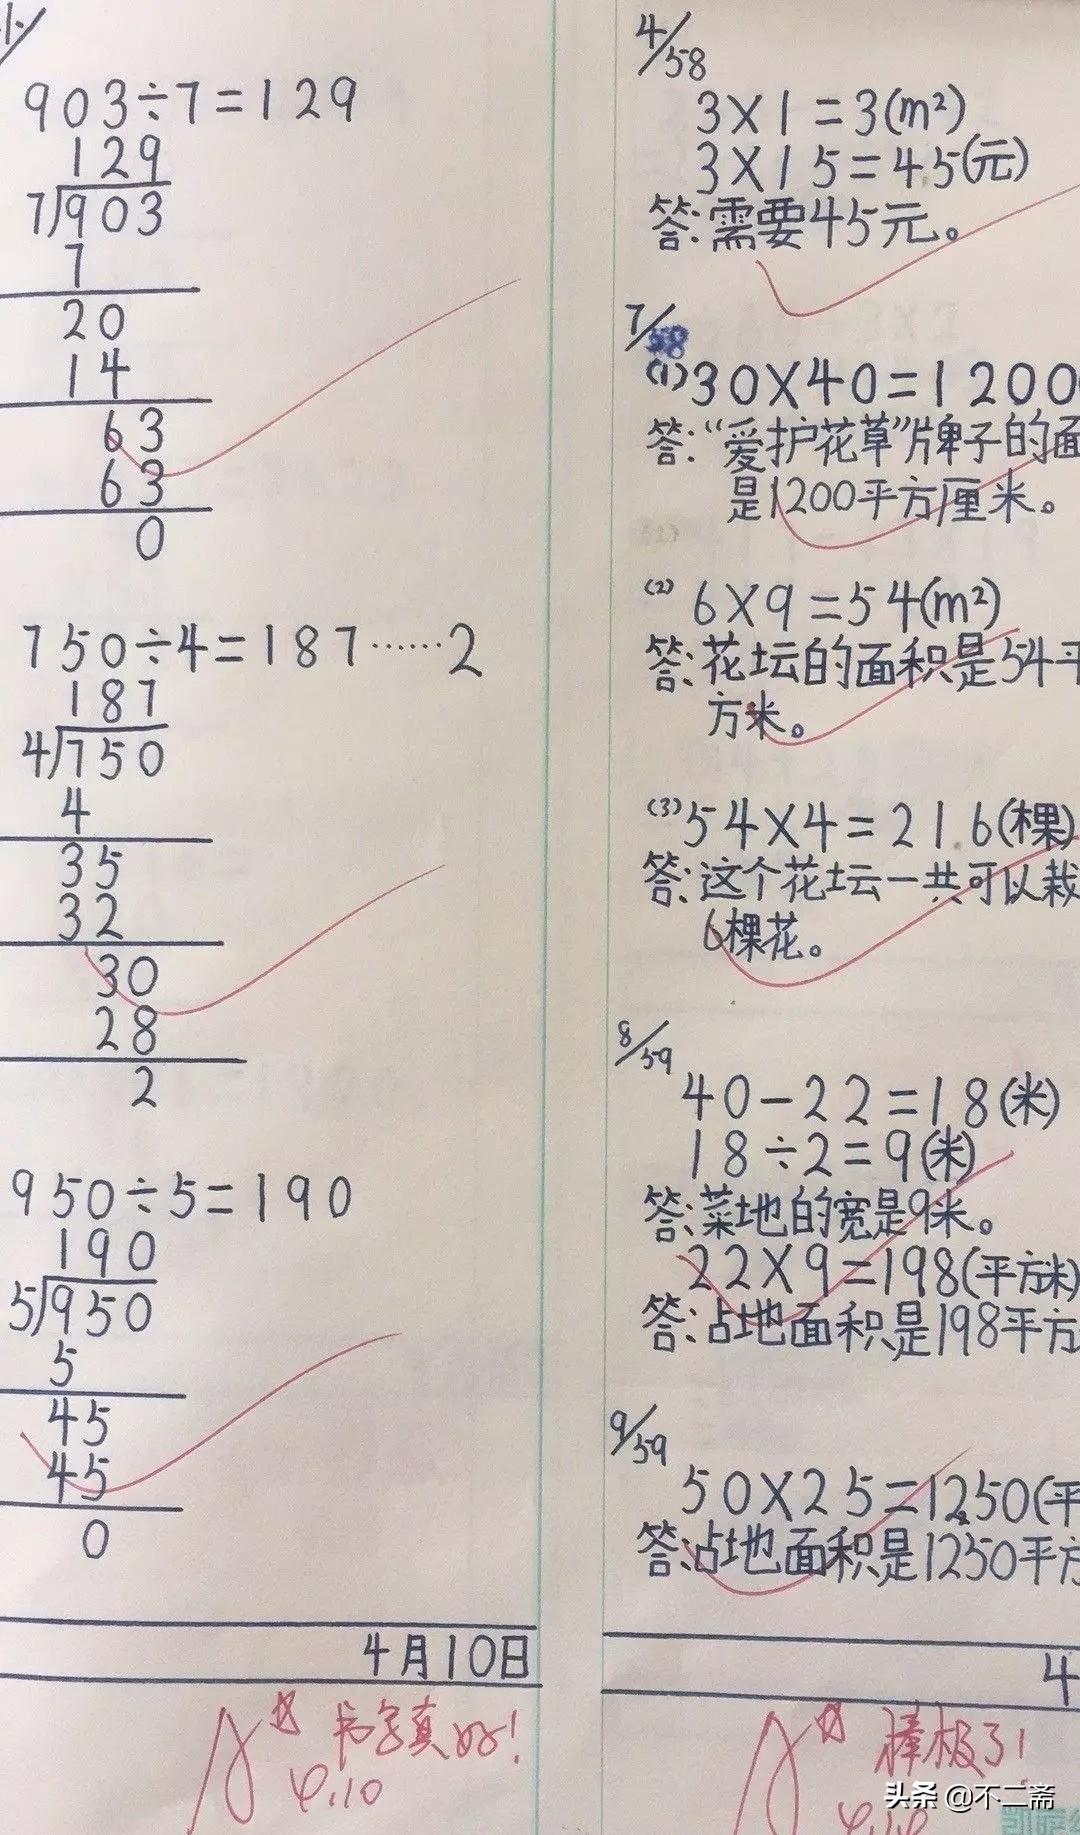 903÷7=129
129
7)903
7
20
14
63
63
0
750÷4=187……2
187
4)750
4
35
32
30
28
2
950÷5=190
190
5)950
5
45
45
0
4月10日
A☆ 书写真好!
4.10
4/58
3×1=3(m²)
3×15=45(元)
答:需要45元。
7/58
(1)30×40=1200
答:“爱护花草”牌子的面
是1200平方厘米。
(2) 6×9=54(m²)
答:花坛的面积是54平
方米。
(3)54×4=216(棵)
答:这个花坛一共可以栽
6棵花。
8/59
40-22=18(米)
18÷2=9(米)
答:菜地的宽是9米。
22×9=198(平方米)
答:占地面积是198平方
9/59
50×25=1250(平
答:占地面积是1250平方
4
A☆ 棒极了!
头条 @不二斋